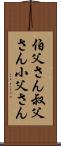 伯父さん叔父
さん小父さん